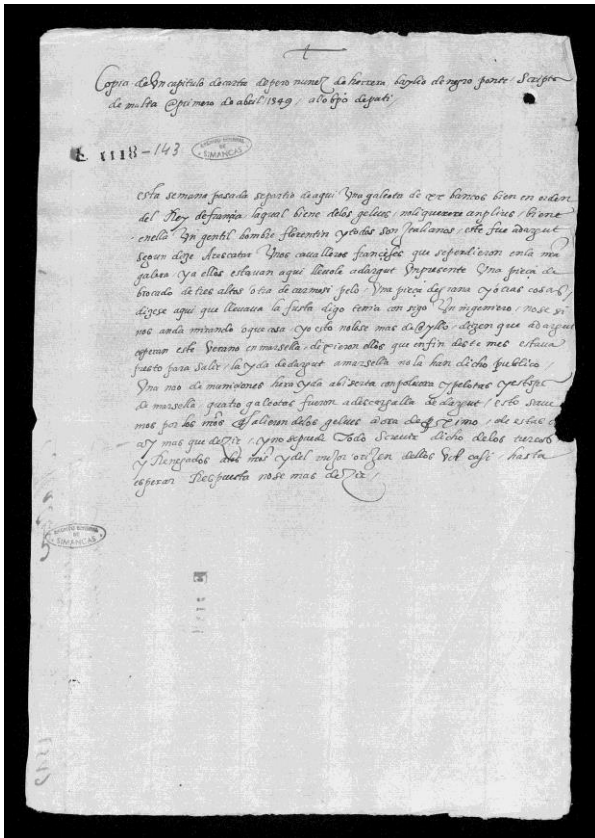 Copia de Un capitulo de carta de pero nunez de herrera baylio de negro ponte scripta
de malta @ primero de abril 1549 / al obpo de pati /
E 1118-143
ARCHIVO GENERAL
DE
SIMANCAS
esta semana pasada se partio de aqui Una galeota de xx bancos bien en orden
del Rey de françia / la qual biene de los gelues / biene
en ella Un gentil hombre florentin y todos son ytalianos / este fue a dargut
segun dize a Rescatar Unos cavalleros françeses que se perdieron en la
galera y a ellos estauan aqui lleuole a dargut Un presente Una pieça de
brocado de tres altos otra de carmesi pelo Una pieça de grana y otras cosas /
dizese aqui que lleuaua la fusta digo tenia con sigo Un ingeniero / no se si
nos anda mirando o que cosa yo esto no lo se mas de oyllo / dizen que a dargut
esperan este Verano en marsella / dixieron ellos que en fin deste mes estaua
presto para salir / la yda de dargut a marsella no la han dicho publico /
Una nao de muniçiones hera yda abiserta con poluora y pelotas
de marsella / quatro galeotas fueron a descargalla de dargut / esto saue
mos por los salieron de los gelues
ay mas que dezir / y no se puede todo screuir dicho de los
y Renegados y del mejor hasta
esperar Respuesta no se mas dezir /
ARCHIVO GENERAL
DE
SIMANCAS